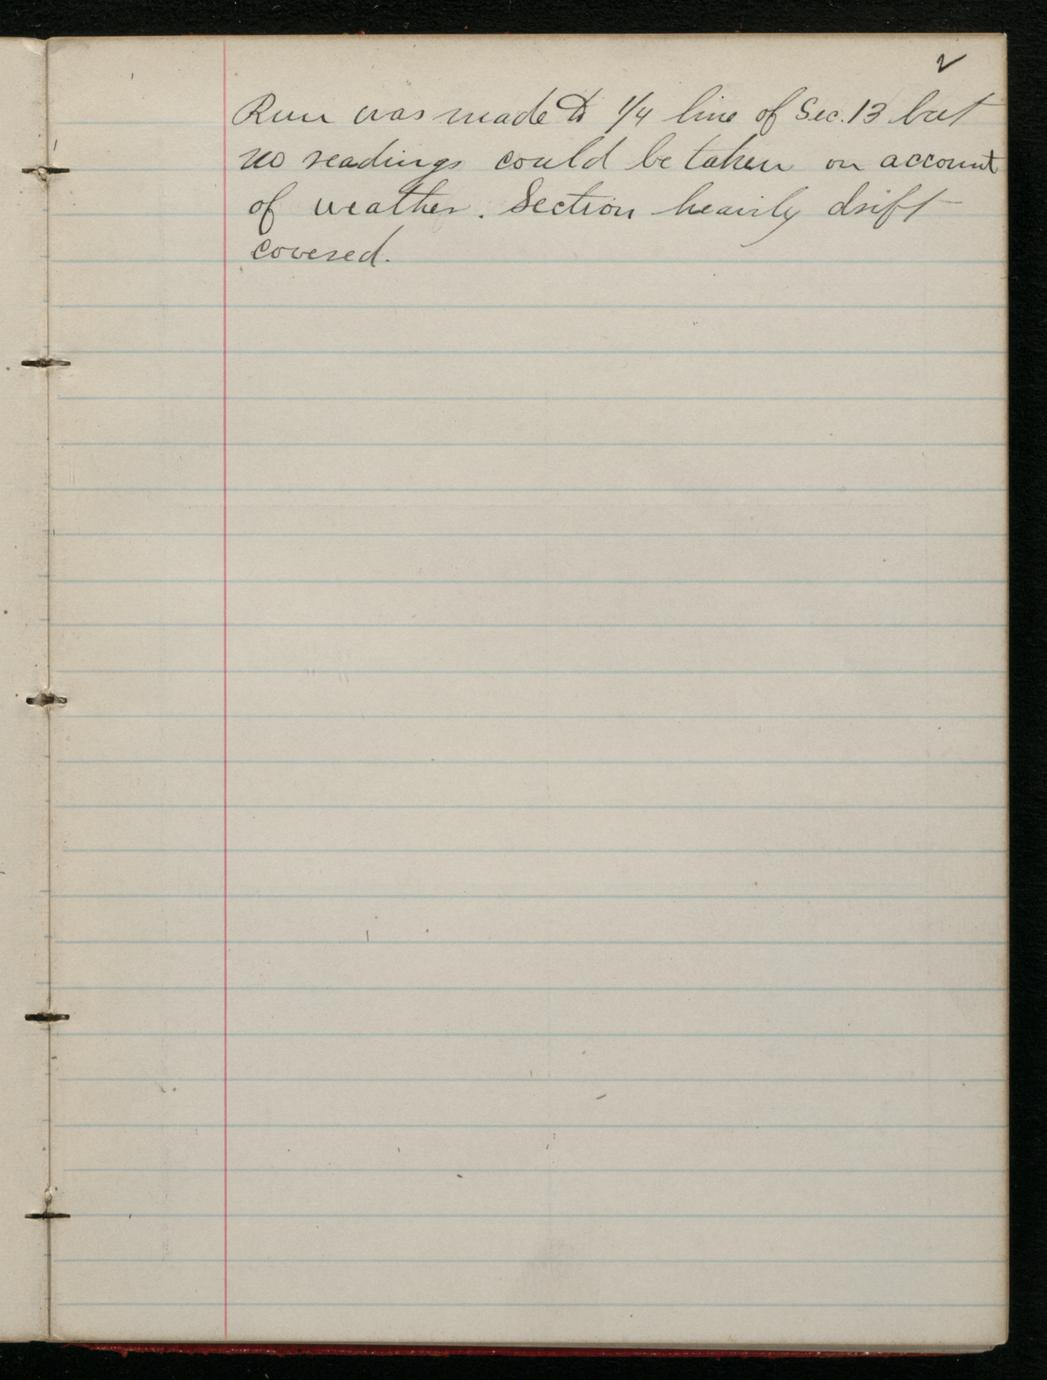 2
Run was made to 1/4 line of Sec. 13 but
no readings could be taken on account
of weather. Section heavily drift
covered.